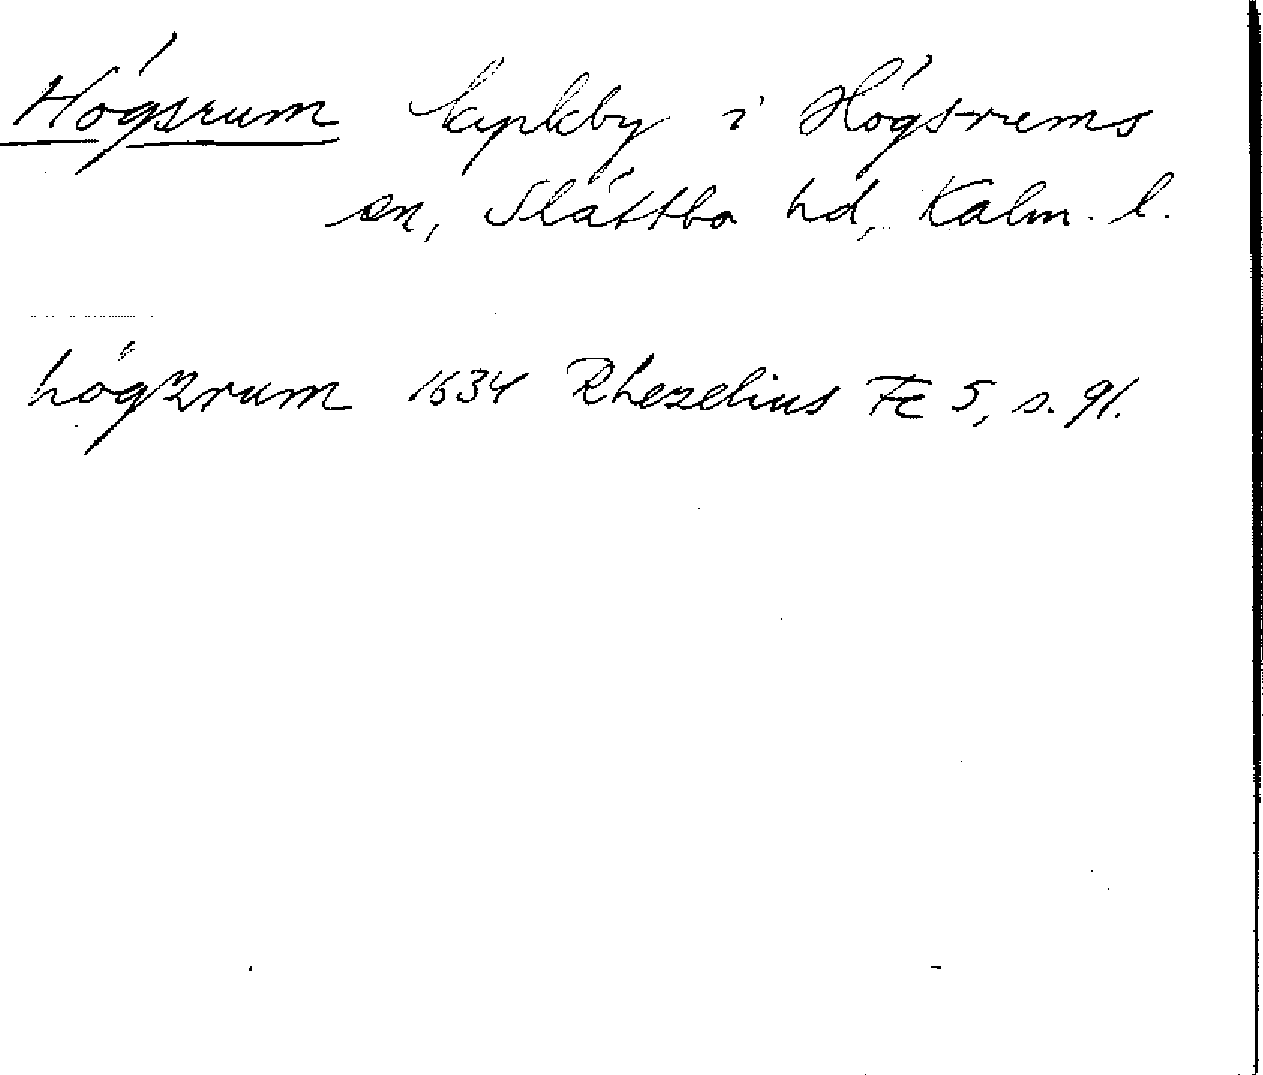 Högsrum kyrkby i Högsrums
sn, Slättbo hd, Kalm. l.
högzrum 1634 Rhezelius Fc 5, s. 91.